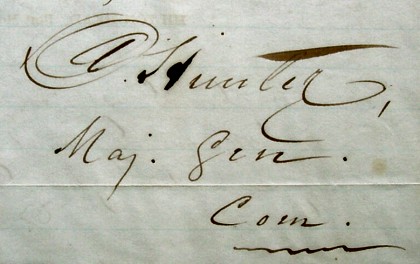 D. Hunter,
Maj. Gen.
Com.